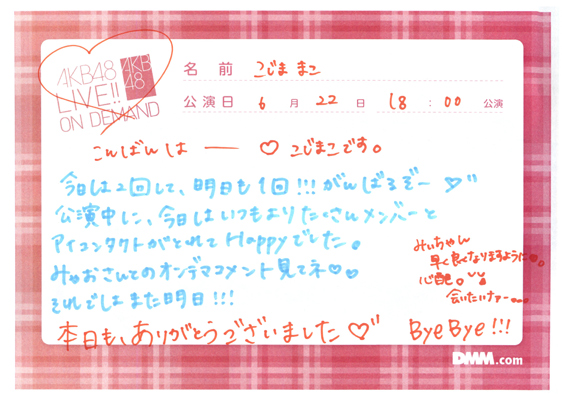 AKB48
LIVE!!
ON DEMAND
AKB
48
名 前 こじま まこ
公演日 6 月 22 日 18 : 00 公演
こんばんはー ♡ こじまこです。
今日は2回して、明日も1回!!! がんばるぞー ♡"
公演中に、今日はいつもよりたくさんメンバーと
アイコンタクトがとれてHappyでした。
みゃおさんとのオンデマコメント見てネ♡♡
それではまた明日!!!
みぃちゃん
早く良くなりますように♡。
心配。
会いたいナァー...
本日も、ありがとうございました♡" ByeBye!!!
DMM.com